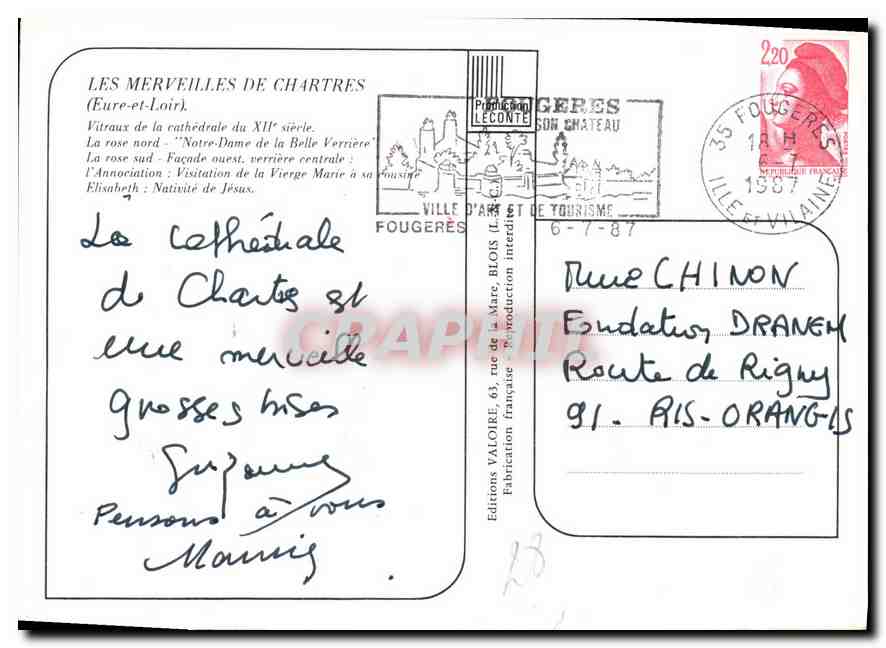 LES MERVEILLES DE CHARTRES
(Eure-et-Loir).
Vitraux de la cathédrale du XIIe siècle.
La rose nord - "Notre-Dame de la Belle Verrière"
La rose sud - Façade ouest, verrière centrale :
l'Annociation : Visitation de la Vierge Marie à sa cousine
Elisabeth : Nativité de Jésus.
La cathédrale
de Chartres est
une merveille
grosses bises
Suzanne
Pensons à vous
Production
LECONTE
Editions VALOIRE, 63, rue de la Mare, BLOIS
Fabrication française - Reproduction interdite
FOUGERES
SON CHATEAU
VILLE D'ART ET DE TOURISME
FOUGERES 6-7-87
2,20
REPUBLIQUE FRANÇAISE
35 FOUGERES
18 H
6-7
1987
ILLE ET VILAINE
Mme CHINON
Fondation DRANEM
Route de Rigny
91- RIS-ORANGIS
28
CPAPHIL